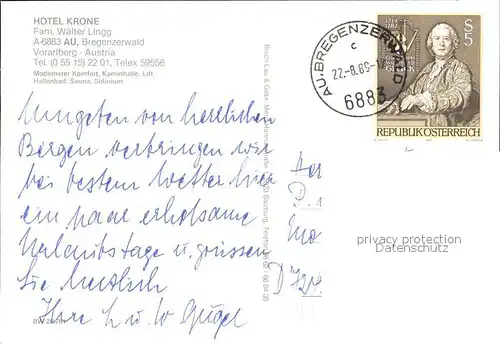 HOTEL KRONE
Fam. Walter Lingg
A-6883 AU, Bregenzerwald
Vorarlberg · Austria
Tel. (0 55 15) 22 01, Telex 59556
Modernster Komfort, Kaminhalle, Lift,
Hallenbad, Sauna, Solarium.
Umgeben von herrlichen
Bergen verbringen wir
bei bestem Wetter hier
ein paar erholsame
Urlaubstage u. grüssen
Sie herzlich
Ihre L u. W Gugel
AU, BREGENZERWALD
c
22.-8.89-
6883
S 5
GLUCK
REPUBLIK ÖSTERREICH
privacy protection
Datenschutz
D